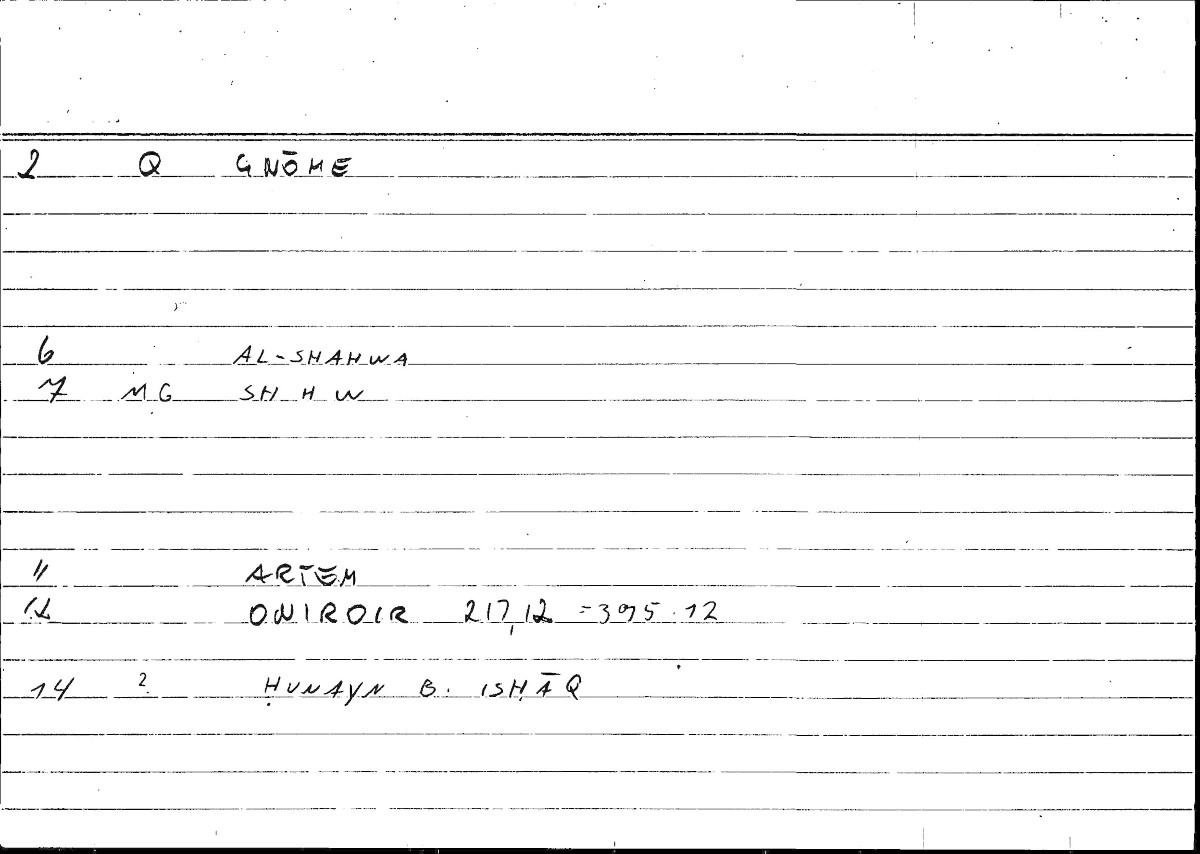 2 Q GNŌME
6 AL-SHAHWA
7 MG SH H W
" ARTEM
12 ONIROIR 217,12 = 395.12
14 2 ḤUNAYN B. ISḤĀQ